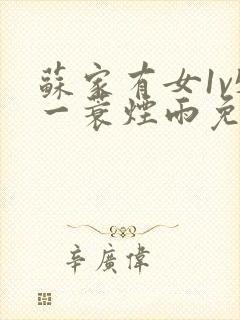 蘇家有女1v
一蓑煙雨免
辛廣偉